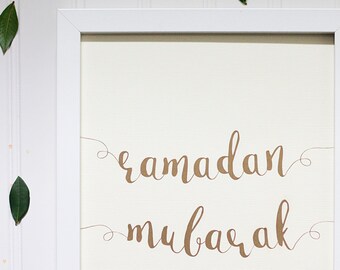 ramadan
mubarak